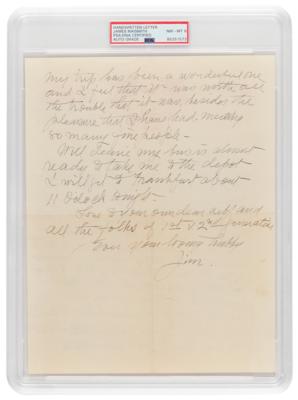 HANDWRITTEN LETTER
JAMES NAISMITH
PSA/DNA CERTIFIED
AUTO GRADE
NM - MT 8
PSA
My trip has been a wonderful one
and I feel that it was worth all
the trouble that it was, besides the
pleasure that I have had meeting
so many people.
Well my bus is almost
ready to take me to the depot
I will get to Frankfurt about
11 Oclock tonight.
Love to your dear self and
all the folks of 1st & 2nd generation
Your loving hubby
Jim.